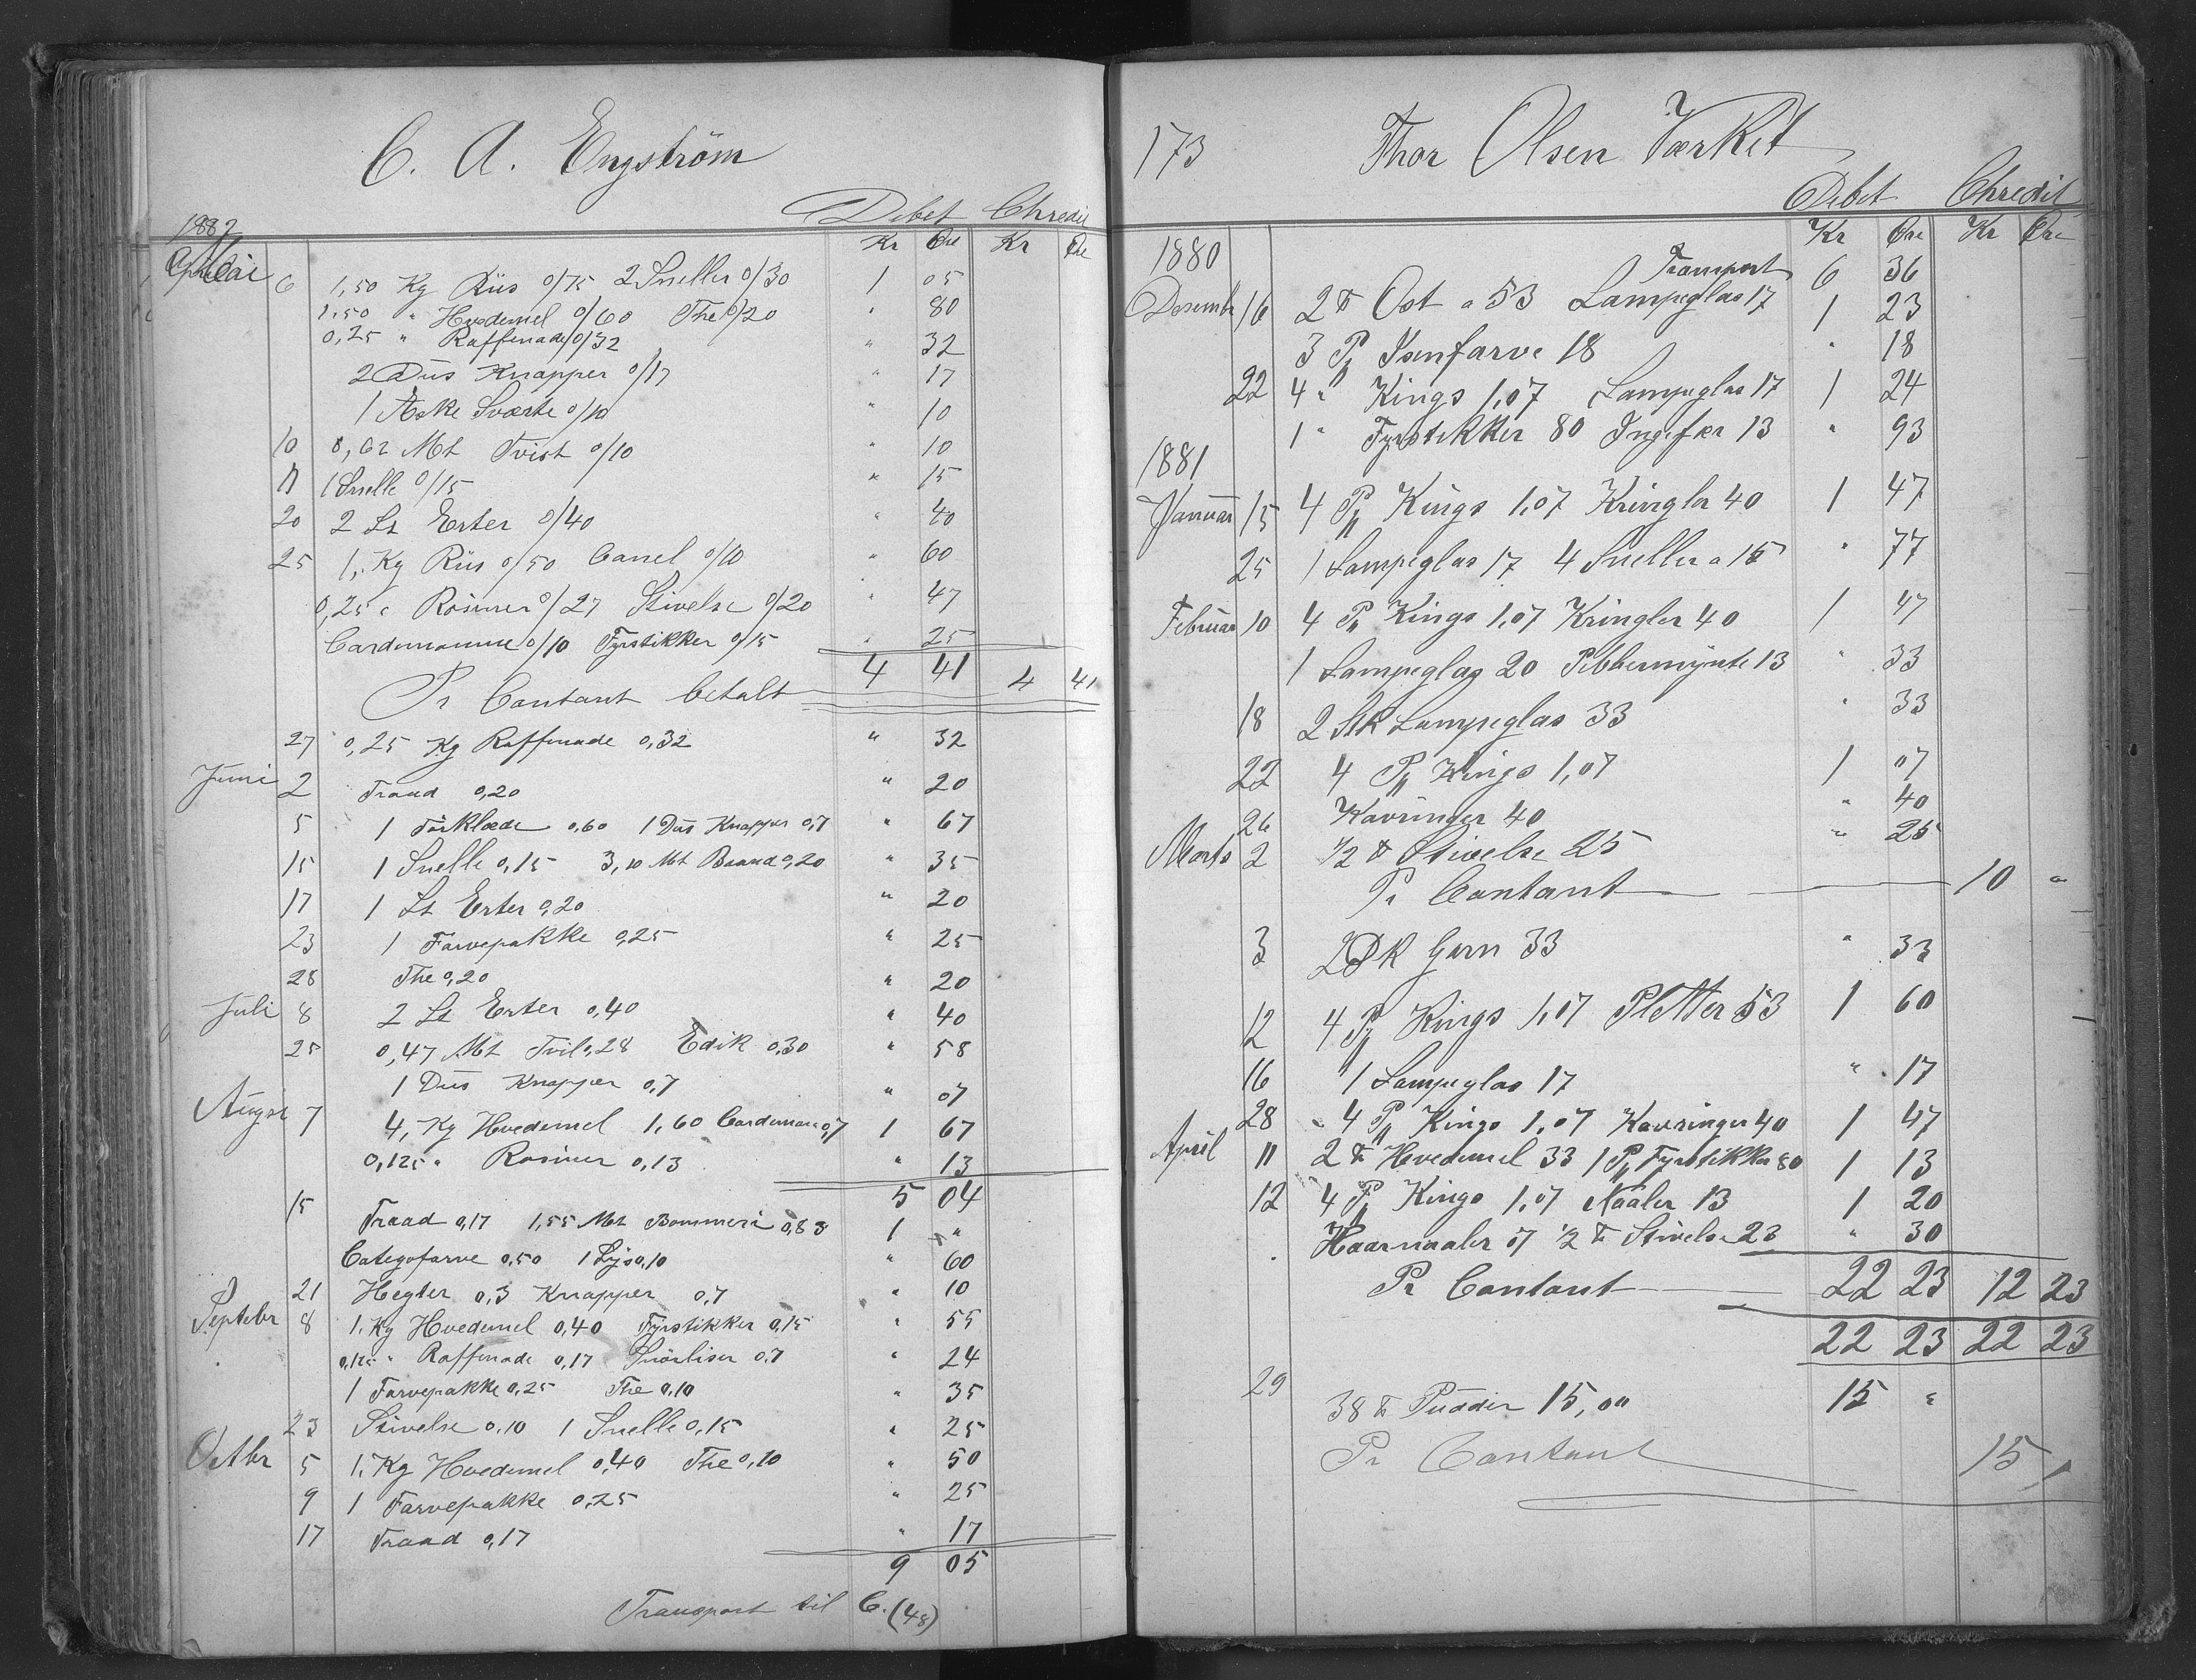 C. A. Engström
Debet Chredit
1882 Kr Øre Kr Øre
Mai 6 1,50 Kg Riis 0/75 2 Sneller 0/30 1 05
1,50 " Hvedemel 0/60 The 0/20 " 80
0,25 " Raffenade 0/32 " 32
2 Dus Knapper 0/17 " 17
1 Æske Sværte 0/10 " 10
10 0,62 Mt Tvist 0/10 " 10
11 1 Snelle 0/15 " 15
20 2 Lt Erter 0/40 " 40
25 1, Kg Riis 0/50 Canel 0/10 " 60
0,25 " Rosiner 0/27 Stivelse 0/20 " 47
Cardemomme 0/10 Fyrstikker 0/15 " 25
4 41
Pr Contant betalt 4 41
27 0,25 Kg Raffinade 0,32 " 32
Juni 2 Traad 0,20 " 20
5 1 Förklæde 0,60 1 Dus Knapper 0,7 " 67
15 1 Snelle 0,15 3,10 Mt Baand 0,20 " 35
17 1 Lt Erter 0,20 " 20
23 1 Farvepakke 0,25 " 25
28 The 0,20 " 20
Juli 8 2 Lt Erter 0,40 " 40
25 0,47 Mt 0,28 Edik 0,30 " 58
1 Dus Knapper 0,7 " 07
August 7 4, Kg Hvedemel 1,60 Cardemom 0,7 1 67
0,125 " Rosiner 0,13 " 13
5 04
15 Traad 0,17 1,55 Mt Bommesi 0,83 1 "
Categofarve 0,50 1 Lys 0,10 " 60
21 Hegter 0,3 Knapper 0,7 " 10
Septebr 8 1, Kg Hvedemel 0,40 Fyrstikker 0,15 " 55
0,125 " Raffinade 0,17 Snörliser 0,7 " 24
1 Farvepakke 0,25 The 0,10 " 35
23 Stivelse 0,10 1 Snelle 0,15 " 25
Octbr 5 1, Kg Hvedemel 0,40 The 0,10 " 50
9 1 Farvepakke 0,25 " 25
17 Traad 0,17 " 17
9 05
Transport til C. (48)
173 Thor Olsen Værket
Debet Chredit
1880 Kr Øre Kr Øre
Transport 6 36
Desembr 16 2 ℔ Ost a 53 Lampeglas 17 1 23
3 Pk Isenfarve 18 " 18
22 4 " Kings 1,07 Lampeglas 17 1 24
1 " Fyrstikker 80 Ingefær 13 " 93
1881
Januar 15 4 Pk Kings 1,07 Kringler 40 1 47
25 1 Lampeglas 17 4 Sneller a 15 " 77
Februar 10 4 Pk Kings 1,07 Kringler 40 1 47
1 Lampeglas 20 Pebbermynte 13 " 33
18 2 Stk Lampeglas 33 " 33
22 4 Pk Kings 1,07 1 07
26 Kavringer 40 " 40
Marts 2 1/2 ℔ Stivelse 25 " 25
Pr Contant 10 "
3 2 Dk Garn 33 " 33
12 4 Pk Kings 1,07 Pletter 53 1 60
16 1 Lampeglas 17 " 17
28 4 Pk Kings 1,07 Kavringer 40 1 47
April 11 2 ℔ Hvedemel 33 1 Pk Fyrstikker 80 1 13
12 4 Pk Kings 1,07 Naaler 13 1 20
Haarnaaler 07 1/2 ℔ Stivelse 23 " 30
Pr Contant 22 23 12 23
22 23 22 23
29 38 ℔ Pudder 15,00 15 "
Pr Contant 15,